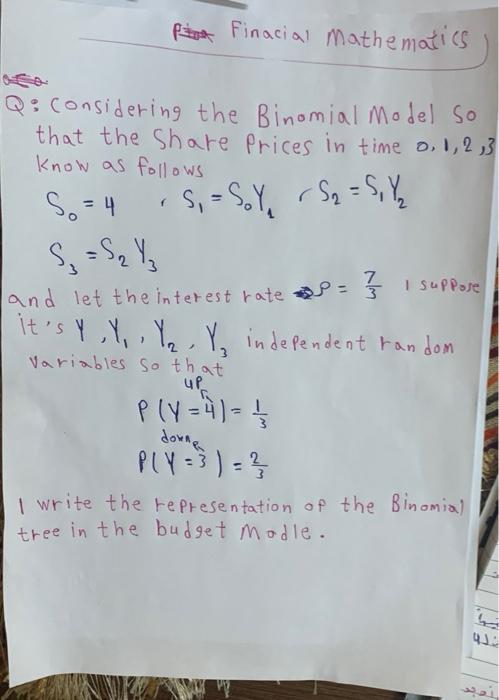 Finacial Mathematics
Q: Considering the Binomial Model So
that the Share Prices in time 0, 1, 2, 3
Know as follows
S₀ = 4 , S₁ = S₀Y₁ , S₂ = S₁Y₂
S₃ = S₂Y₃
and let the interest rate ρ = 7/3 I suppose
it's Y, Y₁, Y₂, Y₃ independent random
Variables so that
up
P(Y = 4) = 1/3
down
P(Y = 3) = 2/3
I write the representation of the Binomial
tree in the budget Modle.